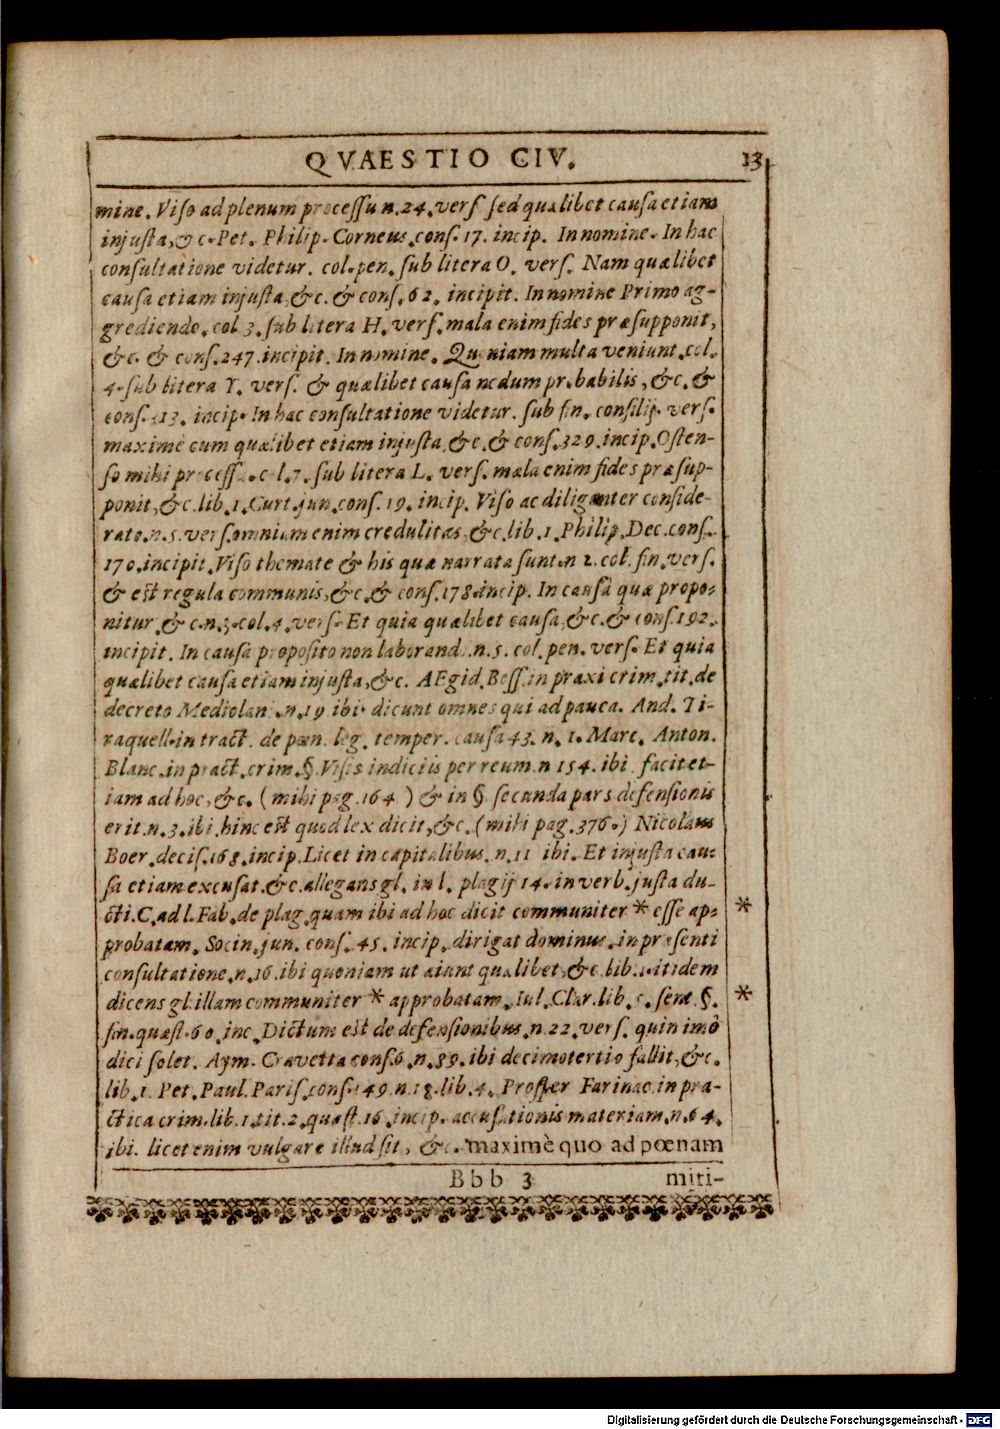 QVAESTIO CIV. 13
mine. Viso ad plenum processu n. 24. vers. sed quælibet causa etiam
injusta, &c. Pet. Philip. Corneus. cons. 17. incip. In nomine. In hac
consultatione videtur. col. pen. sub litera O. vers. Nam quælibet
causa etiam injusta, &c. & cons. 62. incipit. In nomine Primo ag-
grediendo. col 3. sub litera H. vers. mala enim fides præsupponit,
&c. & cons. 247. incipit. In nomine. Quoniam multa veniunt. col.
4. sub litera Y. vers. & quælibet causa nedum probabilis, &c. &
cons. 113. incip. In hac consultatione videtur. sub fin. consilij. vers.
maximè cum quælibet etiam injusta, &c. & cons. 329. incip. Osten-
so mihi processu. col. 7. sub litera L. vers. mala enim fides præsup-
ponit, &c. lib. 1. Curt. jun. cons. 19. incip. Viso ac diligenter conside-
rato. n. 5. vers. omnium enim credulitas, &c. lib. 1. Philip. Dec. cons.
170. incipit. Viso themate & his quæ narrata sunt. n 2. col. fin. vers.
& est regula communis, &c. & cons. 178. incip. In causa quæ propo-
nitur. & c. n. 3. col. 4. vers. Et quia quælibet causa, &c. & cons. 192.
incipit. In causa proposito non laborand. n. 5. col. pen. vers. Et quia
quælibet causa etiam injusta, &c. AEgid. Boss. in praxi crim. tit. de
decreto Mediolan. n. 19 ibi dicunt omnes qui ad pauca. And. Ti-
raquell. in tract. de pœn. leg. temper. causa 43. n. 1. Marc. Anton.
Blanc. in pract. crim. §. Visis indiciis per reum. n 154. ibi. facit et-
iam ad hoc, &c. (mihi pag. 164.) & in §. secunda pars defensionis
erit. n. 3. ibi. hinc est quod lex dicit, &c. (mihi pag. 376.) Nicolaus
Boer. decis. 168. incip. Licet in capitalibus. n. 11 ibi. Et injusta cau-
sa etiam excusat. &c. allegans gl. in l. plagij 14. in verb. justa du-
cti. C. ad l. Fab. de plag. quam ibi ad hoc dicit communiter * esse ap- *
probatam. Socin. jun. cons. 45. incip. dirigat dominus. in præsenti
consultatione. n. 16. ibi quoniam ut aiunt quælibet, &c. lib. 1. itidem
dicens gl. illam communiter * approbatam. Iul. Clar. lib. 5. sent. §. *
fin. quæst. 60. inc. Dictum est de defensionibus. n. 22. vers. quin imò
dici solet. Aym. Cravetta cons. 6. n. 89. ibi decimotertio fallit, &c.
lib. 1. Pet. Paul. Paris. cons. 149. n. 18. lib. 4. Prosper Farinac. in pra-
ctica crim. lib. 1. tit. 2. quæst. 16. incip. accusationis materiam. n. 64.
ibi. licet enim vulgare illud sit, &c. maximè quo ad pœnam
Bbb 3 miti-
Digitalisierung gefördert durch die Deutsche Forschungsgemeinschaft - DFG